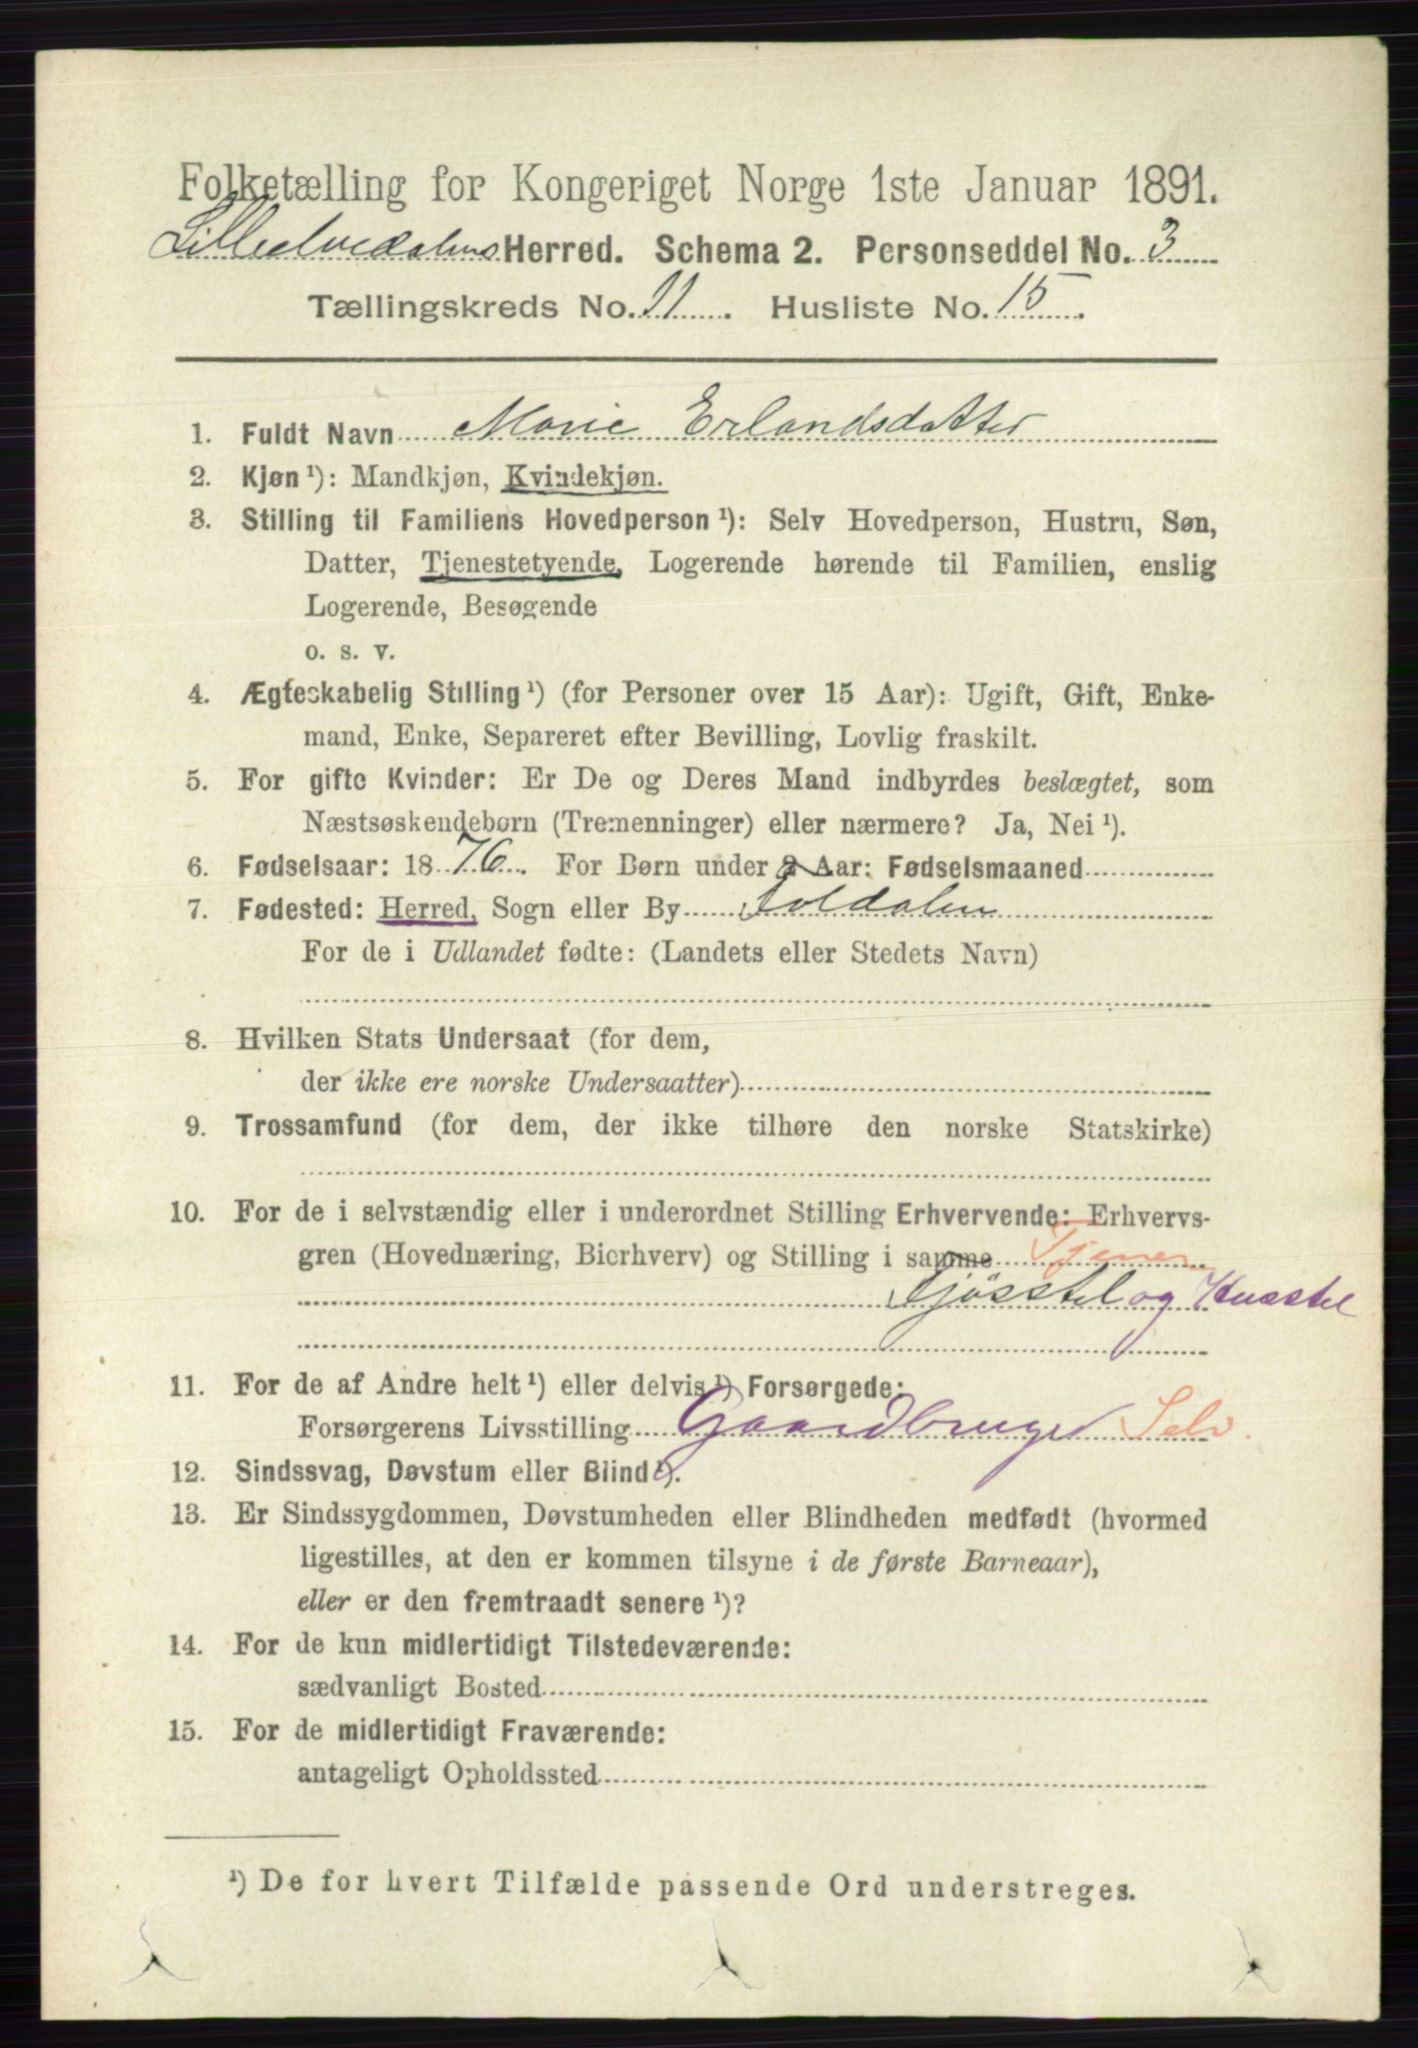 Folketælling for Kongeriget Norge 1ste Januar 1891.
Lilleelvedalens Herred. Schema 2. Personseddel No. 3
Tællingskreds No. 11. Husliste No. 15.
1. Fuldt Navn Marie Erlandsdatter
2. Kjøn ¹): Mandkjøn, Kvindekjøn.
3. Stilling til Familiens Hovedperson ¹): Selv Hovedperson, Hustru, Søn,
Datter, Tjenestetyende, Logerende hørende til Familien, enslig
Logerende, Besøgende
o. s. v.
4. Ægteskabelig Stilling ¹) (for Personer over 15 Aar): Ugift, Gift, Enke-
mand, Enke, Separeret efter Bevilling, Lovlig fraskilt.
5. For gifte Kvinder: Er De og Deres Mand indbyrdes beslægtet, som
Næstsøskendebørn (Tremenninger) eller nærmere? Ja, Nei ¹).
6. Fødselsaar: 1876. For Børn under 2 Aar: Fødselsmaaned
7. Fødested: Herred, Sogn eller By Soldalen
For de i Udlandet fødte: (Landets eller Stedets Navn)
8. Hvilken Stats Undersaat (for dem,
der ikke ere norske Undersaatter)
9. Trossamfund (for dem, der ikke tilhøre den norske Statskirke)
10. For de i selvstændig eller i underordnet Stilling Erhvervende: Erhvervs-
gren (Hovednæring, Bierhverv) og Stilling i samme Tjener
Fjösstel og Husstel
11. For de af Andre helt ¹) eller delvis ¹) Forsørgede:
Forsørgerens Livsstilling Gaardbruger Selv.
12. Sindssvag, Døvstum eller Blind ¹).
13. Er Sindssygdommen, Døvstumheden eller Blindheden medfødt (hvormed
ligestilles, at den er kommen tilsyne i de første Barneaar),
eller er den fremtraadt senere ¹)?
14. For de kun midlertidigt Tilstedeværende:
sædvanligt Bosted
15. For de midlertidigt Fraværende:
antageligt Opholdssted
¹) De for hvert Tilfælde passende Ord understreges.